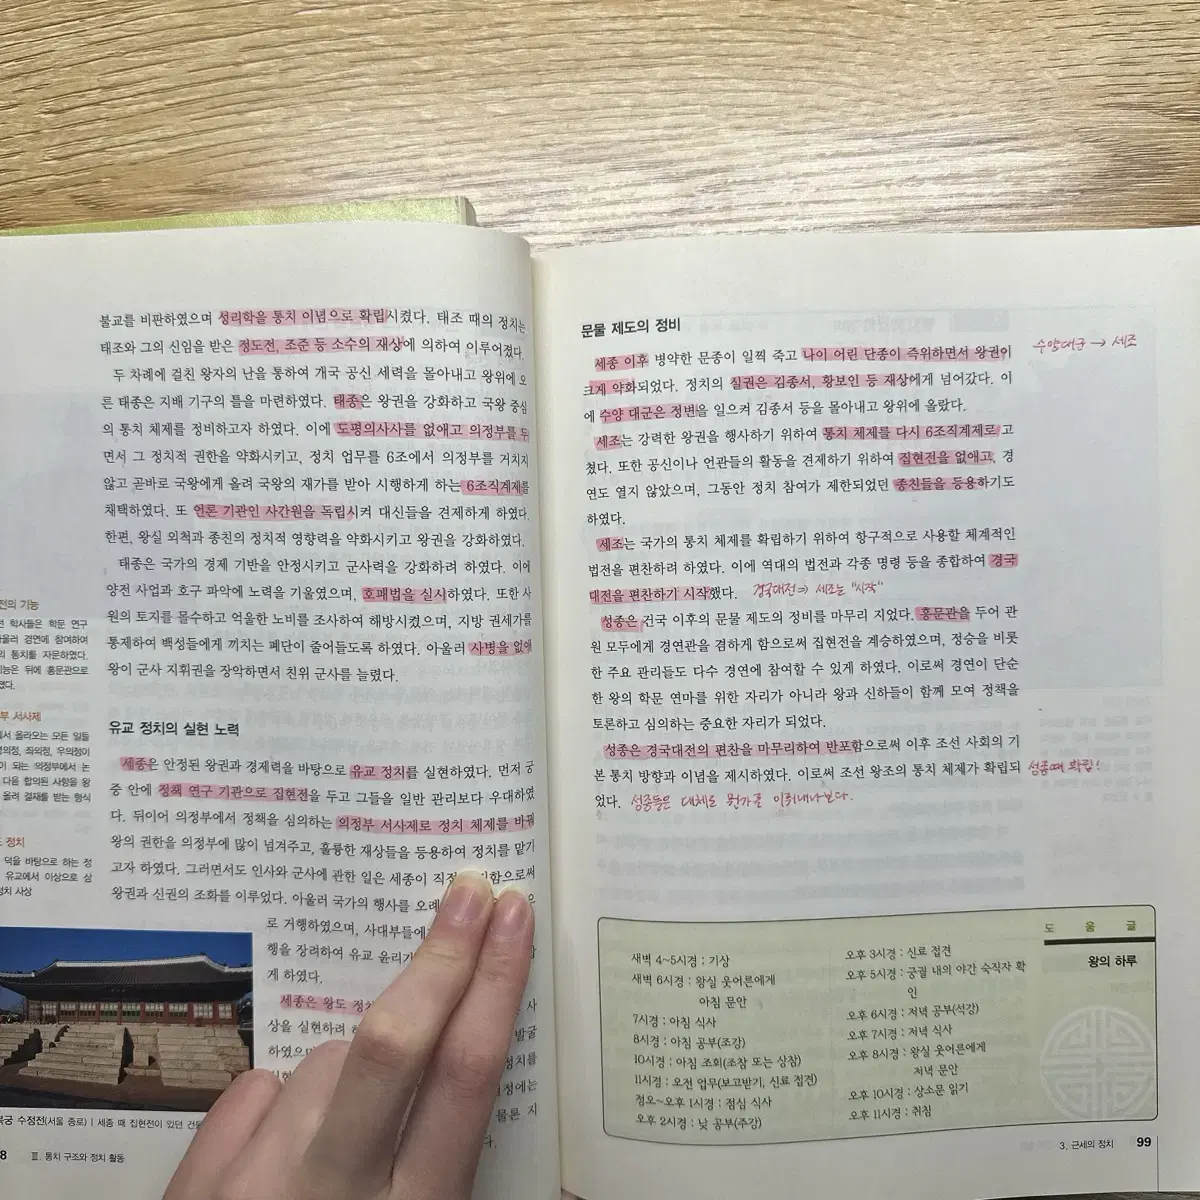 불교를 비판하였으며 성리학을 통치 이념으로 확립시켰다. 태조 때의 정치는
태조와 그의 신임을 받은 정도전, 조준 등 소수의 재상에 의하여 이루어졌다.
두 차례에 걸친 왕자의 난을 통하여 개국 공신 세력을 몰아내고 왕위에 오
른 태종은 지배 기구의 틀을 마련하였다. 태종은 왕권을 강화하고 국왕 중심
의 통치 체제를 정비하고자 하였다. 이에 도평의사사를 없애고 의정부를 두
면서 그 정치적 권한을 약화시키고, 정치 업무를 6조에서 의정부를 거치지
않고 곧바로 국왕에게 올려 국왕의 재가를 받아 시행하게 하는 6조직계제를
채택하였다. 또 언론 기관인 사간원을 독립시켜 대신들을 견제하게 하였다.
한편, 왕실 외척과 종친의 정치적 영향력을 약화시키고 왕권을 강화하였다.
태종은 국가의 경제 기반을 안정시키고 군사력을 강화하려 하였다. 이에
양전 사업과 호구 파악에 노력을 기울였으며, 호패법을 실시하였다. 또한 사
원의 토지를 몰수하고 억울한 노비를 조사하여 해방시켰으며, 지방 권세가를
통제하여 백성들에게 끼치는 폐단이 줄어들도록 하였다. 아울러 사병을 없애
왕이 군사 지휘권을 장악하면서 친위 군사를 늘렸다.
유교 정치의 실현 노력
세종은 안정된 왕권과 경제력을 바탕으로 유교 정치를 실현하였다. 먼저 궁
중 안에 정책 연구 기관으로 집현전을 두고 그들을 일반 관리보다 우대하였
다. 뒤이어 의정부에서 정책을 심의하는 의정부 서사제로 정치 체제를 바꿔
왕의 권한을 의정부에 많이 넘겨주고, 훌륭한 재상들을 등용하여 정치를 맡기
고자 하였다. 그러면서도 인사와 군사에 관한 일은 세종이 직접 함으로써
왕권과 신권의 조화를 이루었다. 아울러 국가의 행사를 오례
로 거행하였으며, 사대부들에
행을 장려하여 유교 윤리가
게 하였다.
세종은 왕도 정치
상을 실현하려 사
하였으며 발굴
정치를
정에는
물론 지
다.
전의 기능
전 학사들은 학문 연구
아울러 경연에 참여하여
의 통치를 자문하였다.
기능은 뒤에 홍문관으로
였다.
부 서사제
에서 올라오는 모든 일들
영의정, 좌의정, 우의정이
이 되는 의정부에서 논
다음 합의된 사항을 왕
올려 결재를 받는 형식
도 정치
덕을 바탕으로 하는 정
유교에서 이상으로 삼
정치 사상
복궁 수정전(서울 종로) | 세종 때 집현전이 있던 건물
8 Ⅲ. 통치 구조와 정치 활동
문물 제도의 정비
세종 이후 병약한 문종이 일찍 죽고 나이 어린 단종이 즉위하면서 왕권이
크게 약화되었다. 정치의 실권은 김종서, 황보인 등 재상에게 넘어갔다. 이
에 수양 대군은 정변을 일으켜 김종서 등을 몰아내고 왕위에 올랐다.
수양대군 → 세조
세조는 강력한 왕권을 행사하기 위하여 통치 체제를 다시 6조직계제로 고
쳤다. 또한 공신이나 언관들의 활동을 견제하기 위하여 집현전을 없애고, 경
연도 열지 않았으며, 그동안 정치 참여가 제한되었던 종친들을 등용하기도
하였다.
세조는 국가의 통치 체제를 확립하기 위하여 항구적으로 사용할 체계적인
법전을 편찬하려 하였다. 이에 역대의 법전과 각종 명령 등을 종합하여 경국
대전을 편찬하기 시작했다. 경국대전 ⇒ 세조는 "시작"
성종은 건국 이후의 문물 제도의 정비를 마무리 지었다. 홍문관을 두어 관
원 모두에게 경연관을 겸하게 함으로써 집현전을 계승하였으며, 정승을 비롯
한 주요 관리들도 다수 경연에 참여할 수 있게 하였다. 이로써 경연이 단순
한 왕의 학문 연마를 위한 자리가 아니라 왕과 신하들이 함께 모여 정책을
토론하고 심의하는 중요한 자리가 되었다.
성종은 경국대전의 편찬을 마무리하여 반포함으로써 이후 조선 사회의 기
본 통치 방향과 이념을 제시하였다. 이로써 조선 왕조의 통치 체제가 확립되 성종때 확립!
었다. 성종들은 대체로 뭔가를 이뤄내나보다.
도움글
왕의 하루
새벽 4~5시경 : 기상
새벽 6시경 : 왕실 웃어른에게
아침 문안
7시경 : 아침 식사
8시경 : 아침 공부(조강)
10시경 : 아침 조회(조참 또는 상참)
11시경 : 오전 업무(보고받기, 신료 접견)
정오~오후 1시경 : 점심 식사
오후 2시경 : 낮 공부(주강)
오후 3시경 : 신료 접견
오후 5시경 : 궁궐 내의 야간 숙직자 확
인
오후 6시경 : 저녁 공부(석강)
오후 7시경 : 저녁 식사
오후 8시경 : 왕실 웃어른에게
저녁 문안
오후 10시경 : 상소문 읽기
오후 11시경 : 취침
3. 근세의 정치 99